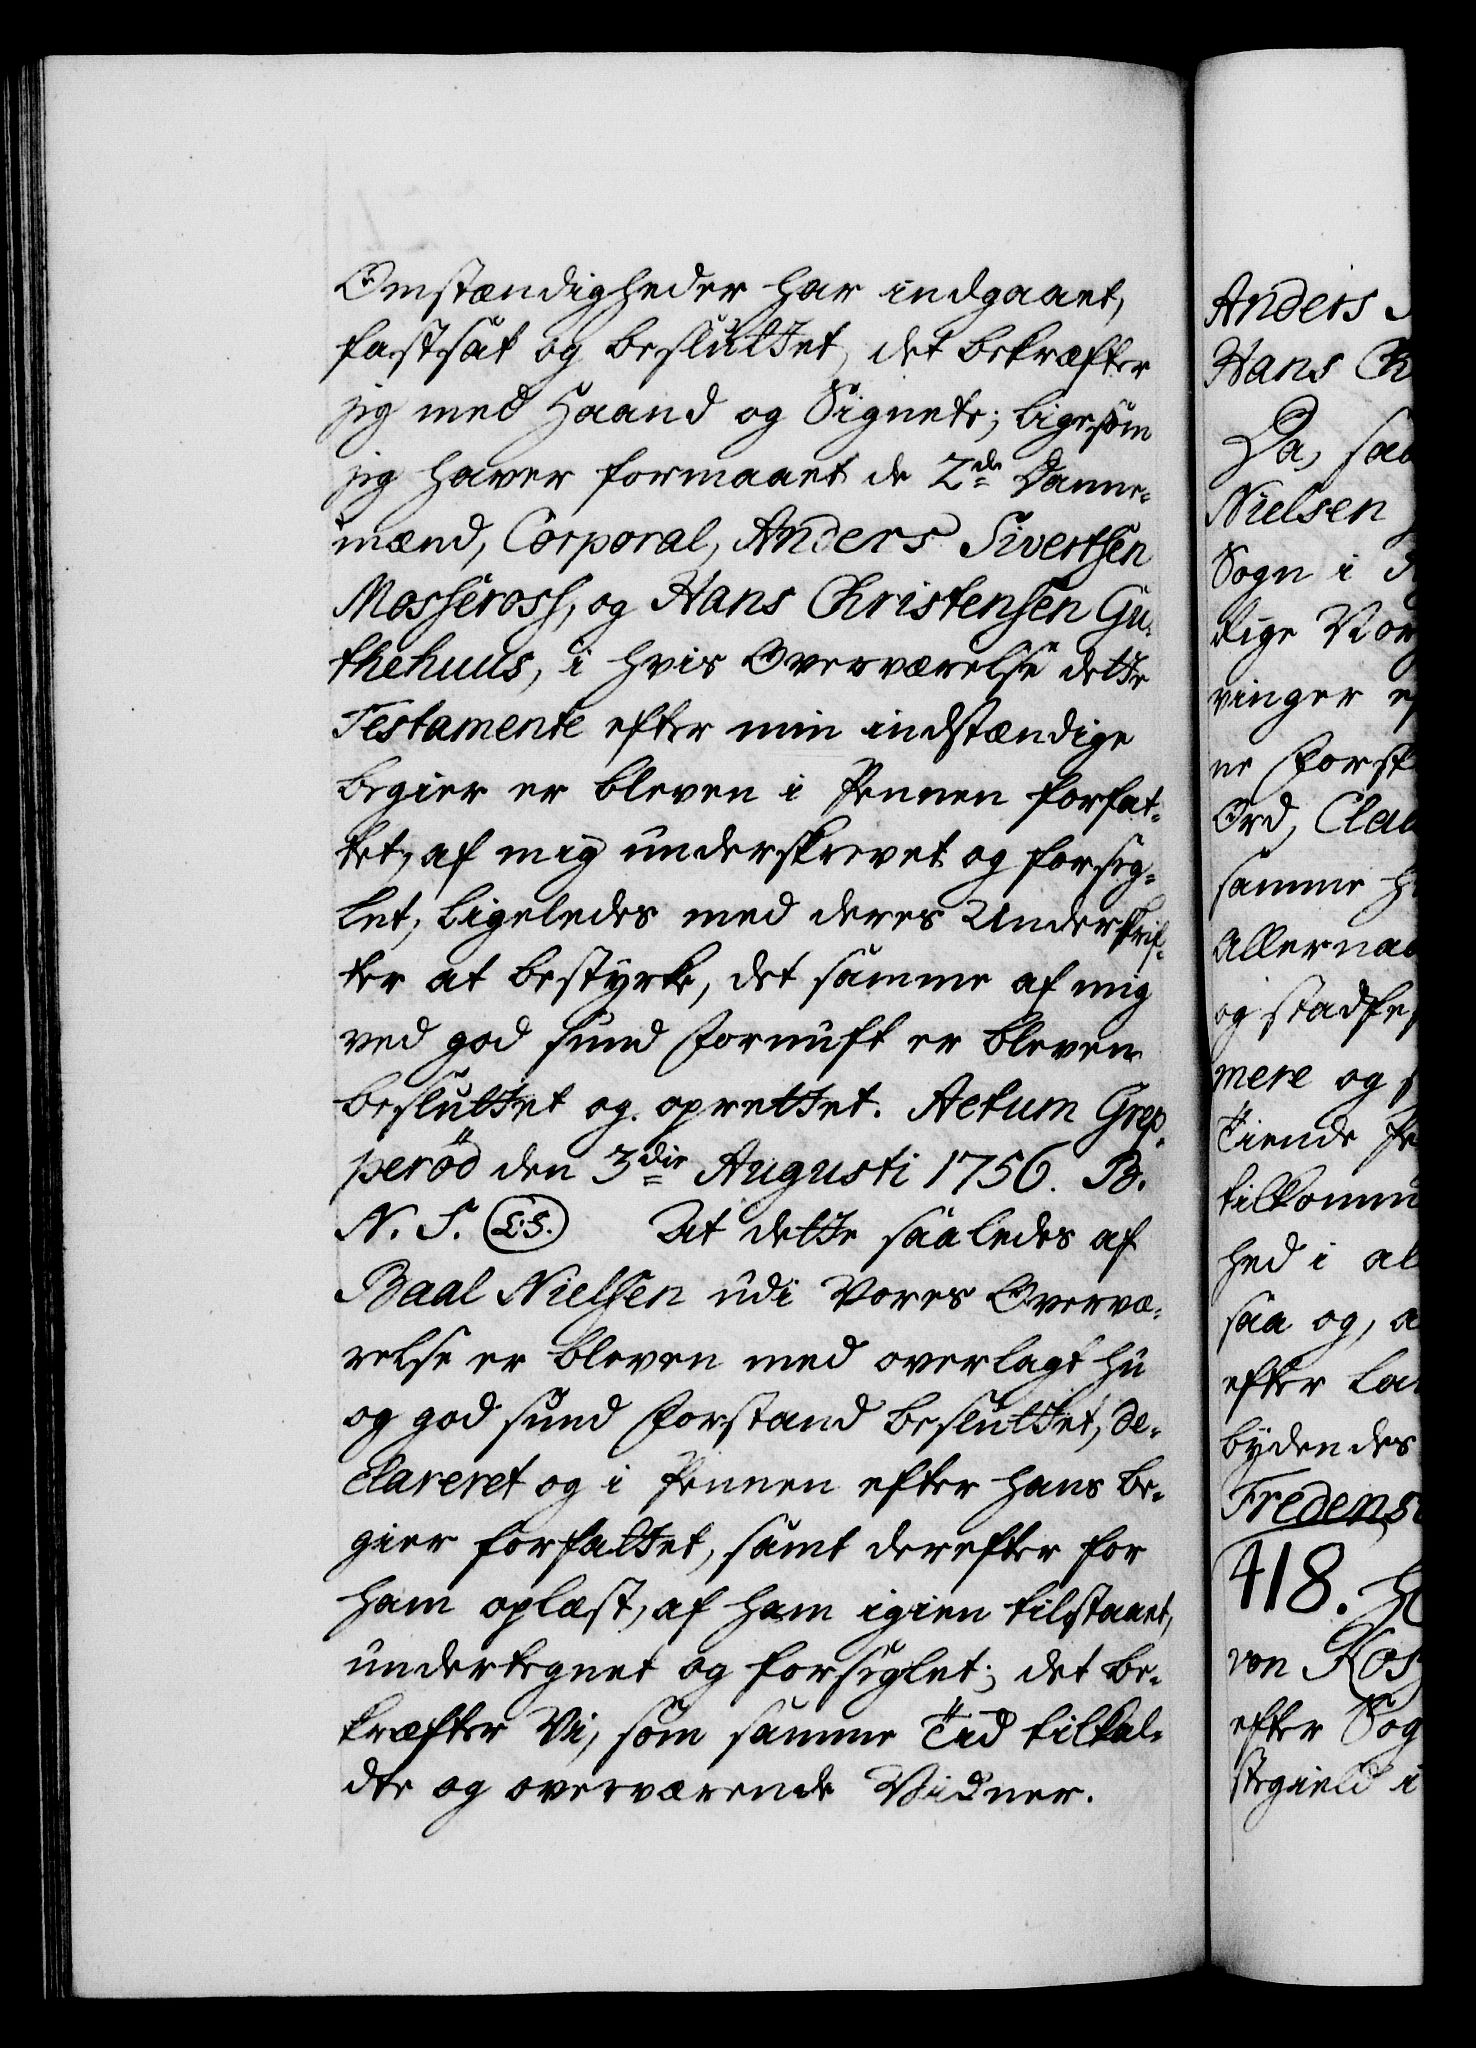 Omstændigheder har indgaaet,
fastsat og besluttet, det bekræfter
jeg med Haand og Signete; ligesom
jeg haver formaaet de 2de Danne-
mænd, Corporal, Anders Sivertsen
Mosseross, og Hans Christensen Gu-
thehuus, i hvis Overværelse dette
Testamente efter min indstændige
Begier er bleven i Pennen forfat-
tet, af mig underskrevet og forseg-
let, ligeledes med deres Underskrif-
ter at bestyrke, det samme af mig
ved god sund Fornuft er bleven
besluttet og oprettet. Actum Grep-
perød den 3die Augusti 1756. B.
N. S. L.S. At dette saaledes af
Baal Nielsen udi Vores Overvæ-
relse er bleven med overlagt Hu
og god sund Forstand besluttet, de-
clareret og i Pennen efter hans Be-
gier forfattet, samt derefter for
ham oplæst, af ham igien tilstaaet,
undertegnet og forseglet; det be-
kræfter Vi, som samme Tid tilkal-
dte og overværende Vidner.
Anders
Hans Ch
Da, saa
Nielsen
Sogn i
dige Vor
ringer ef
ne Forsk
Ord, Clau
samme H
Allernaa
og stadfes
mere og
Tiende Pe
tilkomm
hed i al
saa og, a
efter La
bydendes
Fredens
418. H
von Kos
efter Sog
stegield i